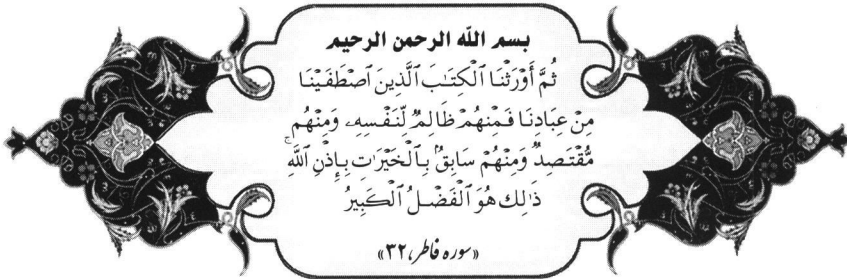 بسم الله الرحمن الرحيم
ثُمَّ أَوْرَثْنَا ٱلْكِتَٰبَ ٱلَّذِينَ ٱصْطَفَيْنَا
مِنْ عِبَادِنَا فَمِنْهُمْ ظَالِمٌ لِّنَفْسِهِۦ وَمِنْهُم
مُّقْتَصِدٌ وَمِنْهُمْ سَابِقٌۢ بِٱلْخَيْرَٰتِ بِإِذْنِ ٱللَّهِۚ
ذَٰلِكَ هُوَ ٱلْفَضْلُ ٱلْكَبِيرُ
«سوره فاطر، ۳۲»